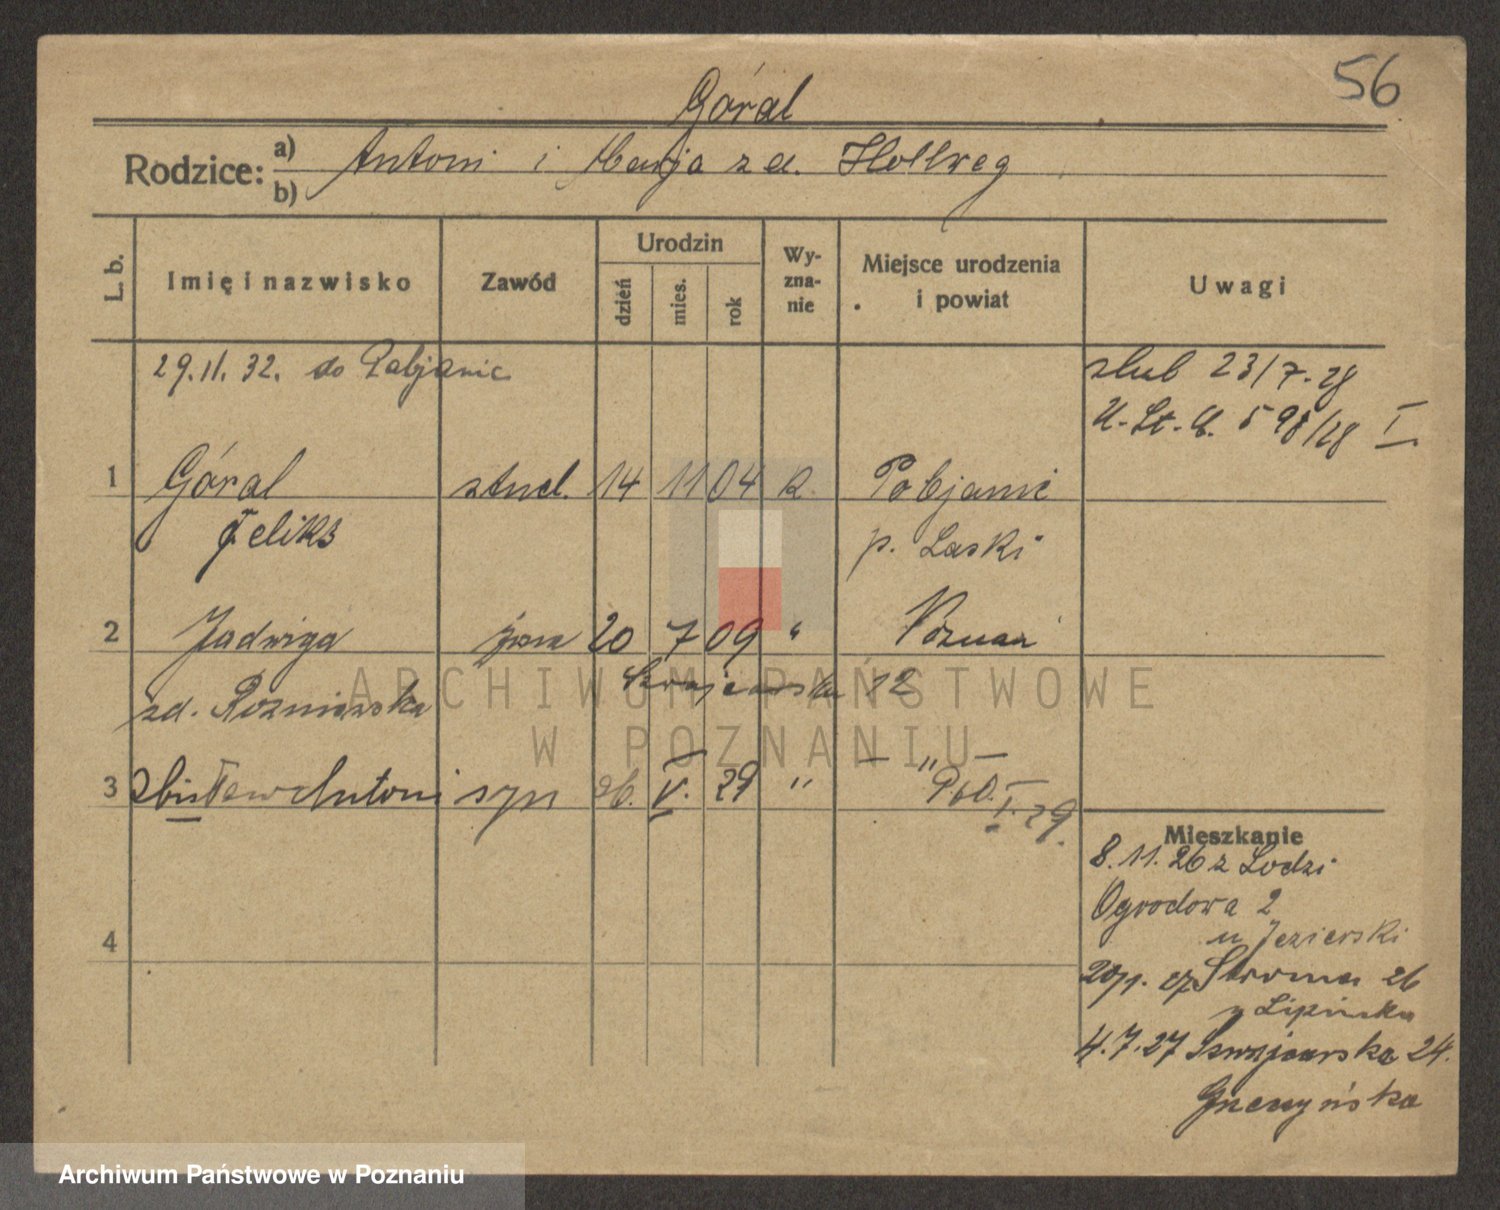 56
Góral
Rodzice: a) Antoni i Marja z d. Hollweg
b)
L. b.
Imię i nazwisko
Zawód
Urodzin
dzień
mies.
rok
Wy-
zna-
nie
Miejsce urodzenia
i powiat
Uwagi
29.11.32. do Pabjanic
ślub 23/7.28
U.St.C. 598/28 I
1 Góral stud. 14 11 04 k. Pabjanic
Feliks p. Laski
2 Jadwiga żona 20 7 09 " Poznań
zd. Rozmiarska 12
3 Antoni syn 26. V. 29 " — " —
I. 29.
Mieszkanie
8.11.26 z Lodzi
Ogrodowa 2
u Jezierski
Stroma 26
u Lipińska
4.7.27 24.
4
ARCHIWUM PAŃSTWOWE
W POZNANIU
Archiwum Państwowe w Poznaniu